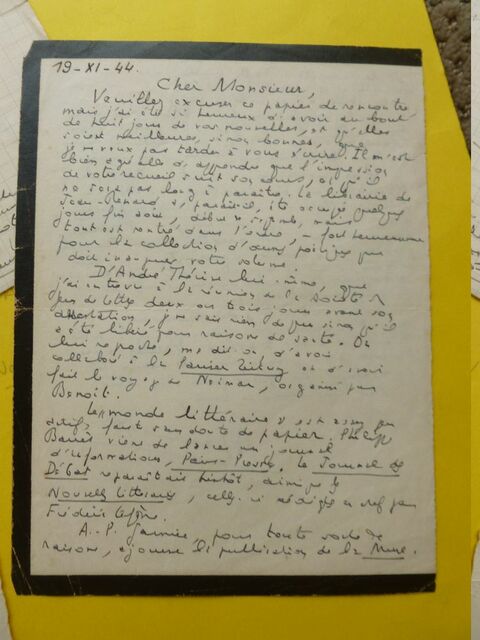 19-XI-44.
Cher Monsieur,
Veuillez excuser ce papier de rencontre
mais j'ai été si heureux d'avoir au bout
de huit jours de vos nouvelles, et qu'elles
soient meilleures, sinon bonnes, que
je ne veux pas tarder à vous écrire. Il m'est
bien agréable d'apprendre que l'impression
de votre recueil suit son cours, et qu'il
ne sera pas long à paraître. La librairie de
Jean-Renard a, paraît-il, été occupée quelques
jours fin août, début septembre, mais
tout est rentré dans l'ordre, — fort heureusement
pour la collection d'œuvres poétiques que
doit inaugurer votre volume.
D'André Thérive lui-même, que
j'ai entrevu à la réunion de la Société
gens de lettres deux ou trois jours avant son
arrestation, je ne sais rien de plus sinon qu'il
a été libéré pour raisons de santé. On
lui reproche, me dit-on, d'avoir
collaboré à la Pariser Zeitung et d'avoir
fait le voyage de Weimar, organisé par
Benoit.
Le monde littéraire est assez peu
actif, faute sans doute de papier. Philippe
Barrès vient de lancer un journal
d'informations, Paris-Presse. Le Journal des
Débats reparaîtrait bientôt, ainsi que les
Nouvelles littéraires, celles-ci rédigées en chef par
Frédéric Lefèvre.
A.-P. Garnier, pour toute sorte de
raisons, ajourne la publication de la Muse.